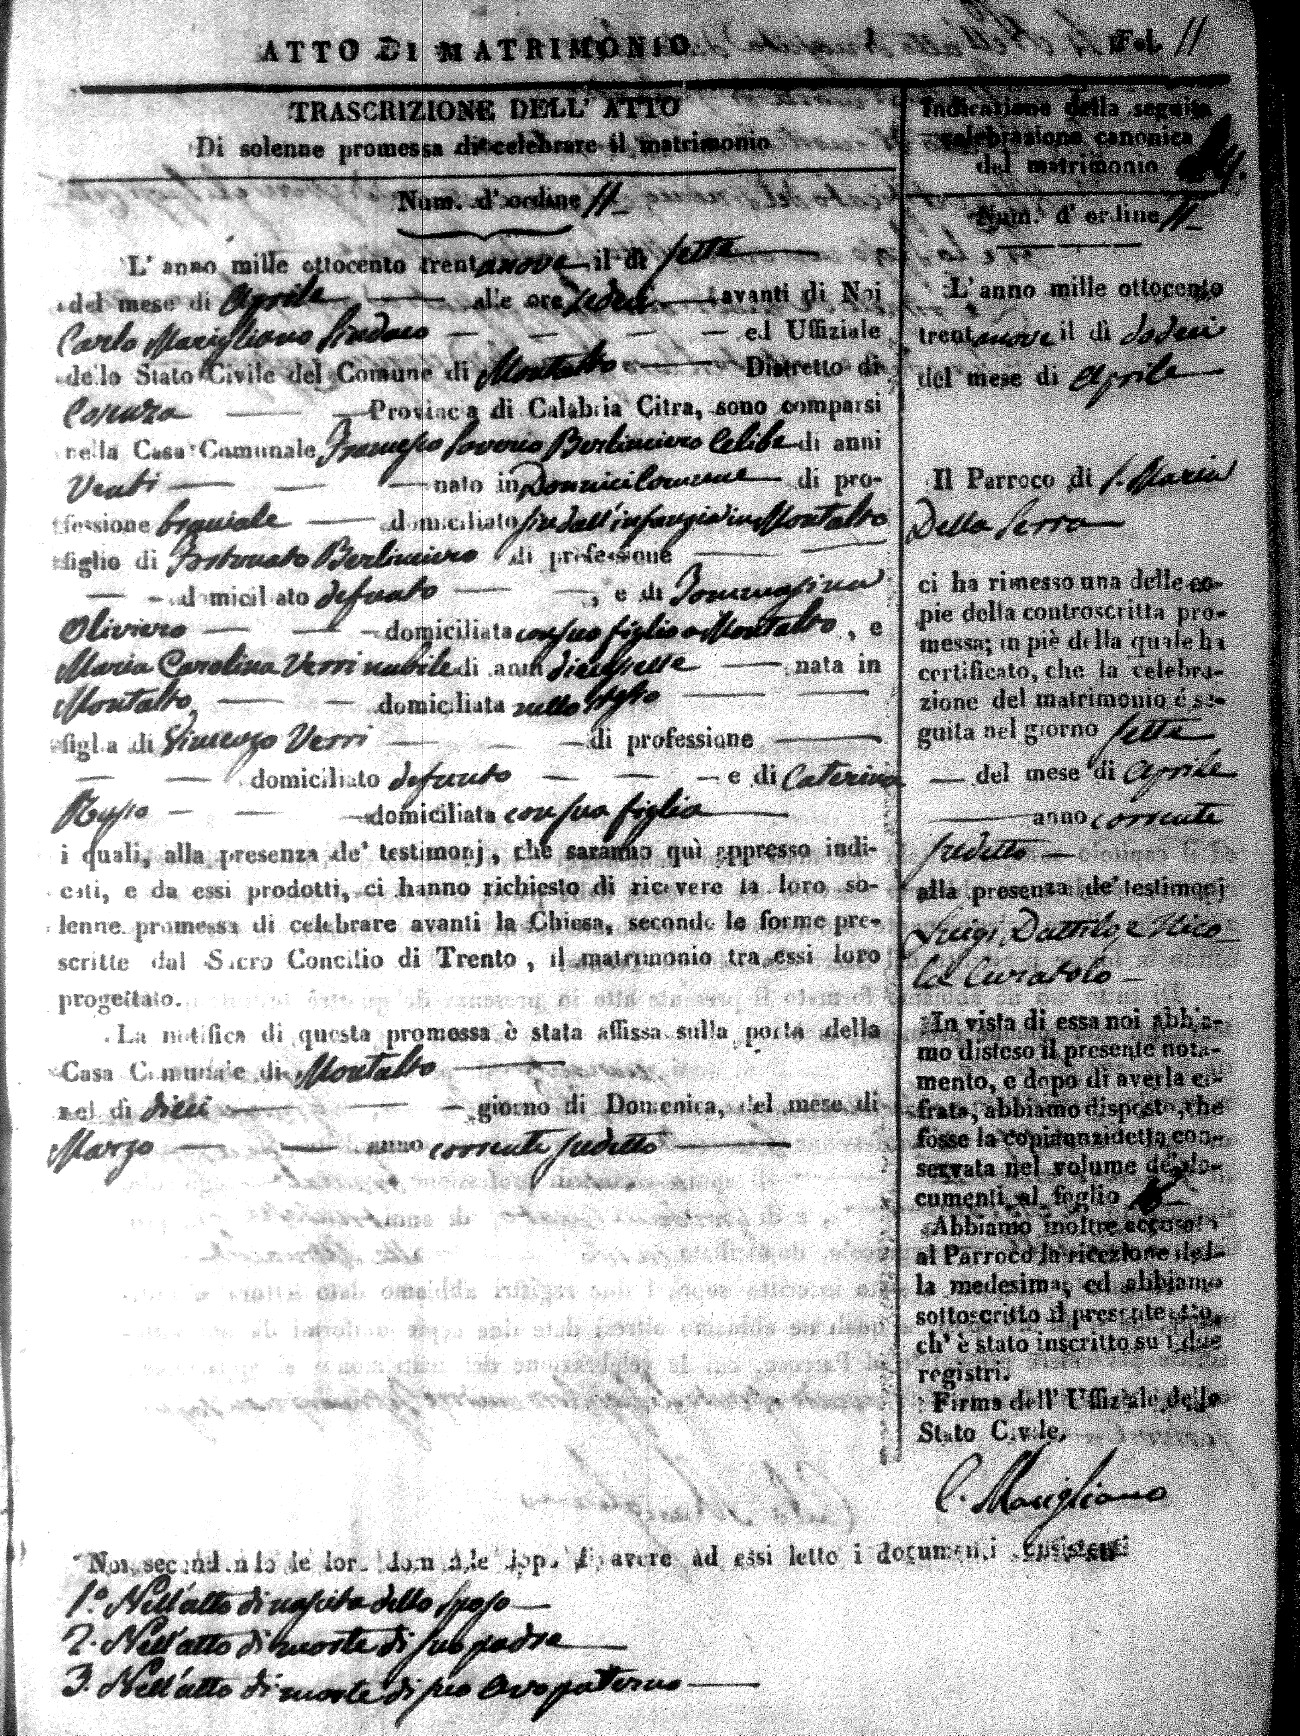 ATTO DI MATRIMONIO
Fol. 11
TRASCRIZIONE DELL' ATTO
Di solenne promessa di celebrare il matrimonio
Num. d' ordine 11
L' anno mille ottocento trentanove il di sette
del mese di Aprile alle ore sedeci avanti di Noi
Carlo Marigliano Sindaco ed Uffiziale
dello Stato Civile del Comune di Montalto Distretto di
Cosenza Provincia di Calabria Citra, sono comparsi
nella Casa Comunale Francesco Saverio Berlinciero Celibe di anni
Venti nato in di pro-
fessione domiciliato sin dall'infanzia in Montalto
figlio di Fortunato Berlinciero di professione
domiciliato defunto , e di Tommasina
Oliviero domiciliata con suo figlio a Montalto , e
Maria Carolina Verri nubile di anni diecisette nata in
Montalto domiciliata nello stesso
figlia di Vincenzo Verri di professione
domiciliato defunto e di Caterina
Russo domiciliata con sua figlia
i quali, alla presenza de' testimonj, che saranno quì appresso indi-
cati, e da essi prodotti, ci hanno richiesto di ricevere la loro so-
lenne promessa di celebrare avanti la Chiesa, secondo le forme pre-
scritte dal Sacro Concilio di Trento, il matrimonio tra essi loro
progettato.
La notifica di questa promessa è stata affissa sulla porta della
Casa Comunale di Montalto
nel di dieci giorno di Domenica, del mese di
Marzo anno corrente sudetto
Indicazione della seguita
celebrazione canonica
del matrimonio
Num. d' ordine 11
L'anno mille ottocento
trentanove il di dodeci
del mese di Aprile
Il Parroco di S. Maria
Della Serra
ci ha rimesso una delle co-
pie della controscritta pro-
messa; in piè della quale ha
certificato, che la celebra-
zione del matrimonio é se-
guita nel giorno sette
del mese di Aprile
anno corrente
sudetto
alla presenza de' testimonj
Luigi Dattilo, e Nico-
la Curatolo
In vista di essa noi abbia-
mo disteso il presente nota-
mento, e dopo di averla ci-
frata, abbiamo disposto, che
fosse la copia anzidetta con-
servata nel volume de' do-
cumenti al foglio
Abbiamo inoltre accusato
al Parroco la ricezione del-
la medesima; ed abbiamo
sottoscritto il presente atto,
ch' è stato inscritto su i due
registri.
Firma dell' Uffiziale dello
Stato Civile.
C. Marigliano
Noi secondando le loro domande dopo di avere ad essi letto i documenti consistenti
1.º Nell'atto di nascita dello sposo
2. Nell'atto di morte di suo padre
3. Nell'atto di morte di suo avo paterno